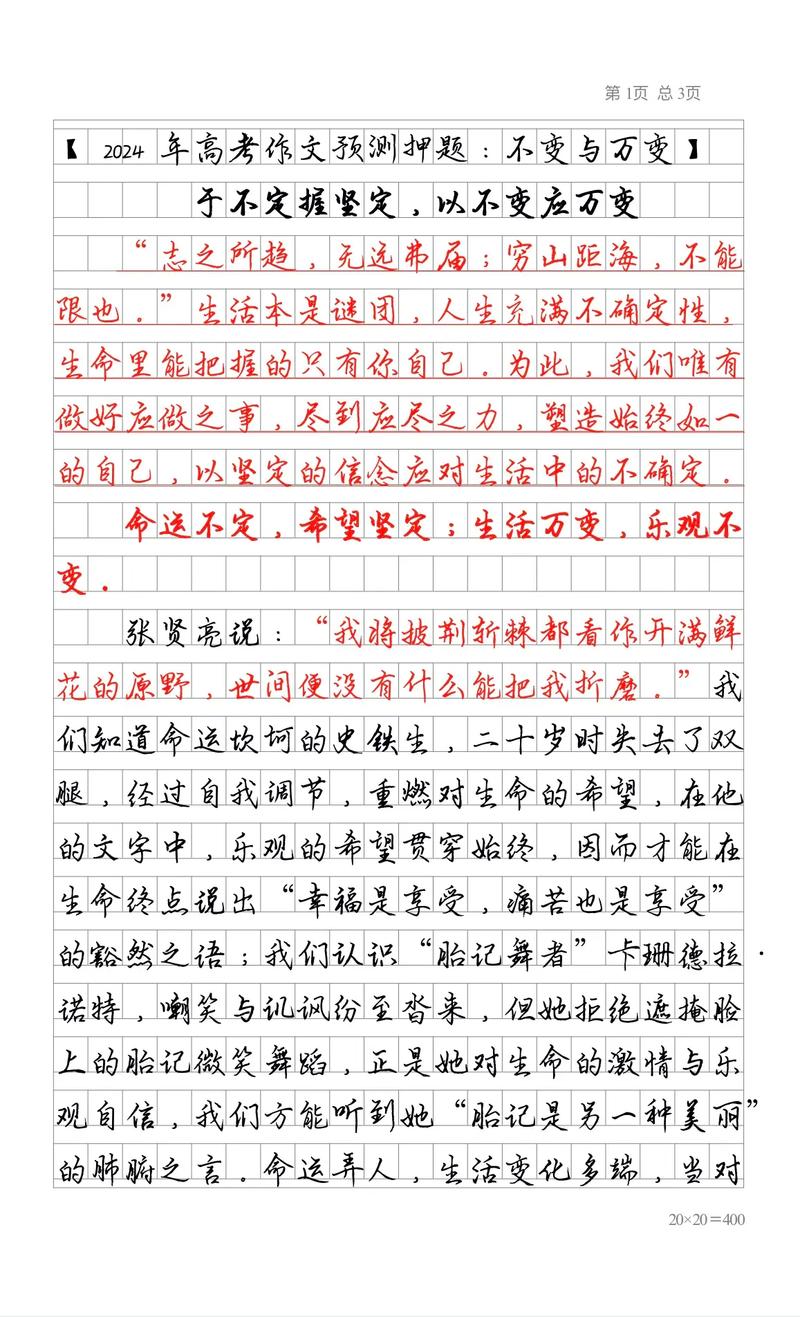 第1页 总3页
【 2024 年高考作文预测押题：不变与万变】
于不定握坚定，以不变应万变
“志之所趋，无远弗届；穷山距海，不能
限也．”生活本是谜团，人生充满不确定性，
生命里能把握的只有你自己．为此，我们唯有
做好应做之事，尽到应尽之力，塑造始终如一
的自己，以坚定的信念应对生活中的不确定．
命运不定，希望坚定；生活万变，乐观不
变．
张贤亮说：“我将披荆斩棘都看作开满鲜
花的原野，世间便没有什么能把我折磨．”我
们知道命运坎坷的史铁生，二十岁时失去了双
腿，经过自我调节，重燃对生命的希望，在他
的文字中，乐观的希望贯穿始终，因而才能在
生命终点说出“幸福是享受，痛苦也是享受”
的豁然之语；我们认识“胎记舞者”卡珊德拉·
诺特，嘲笑与讥讽纷至沓来，但她拒绝遮掩脸
上的胎记微笑舞蹈，正是她对生命的激情与乐
观自信，我们方能听到她“胎记是另一种美丽”
的肺腑之言．命运弄人，生活变化多端，当对
20×20＝400